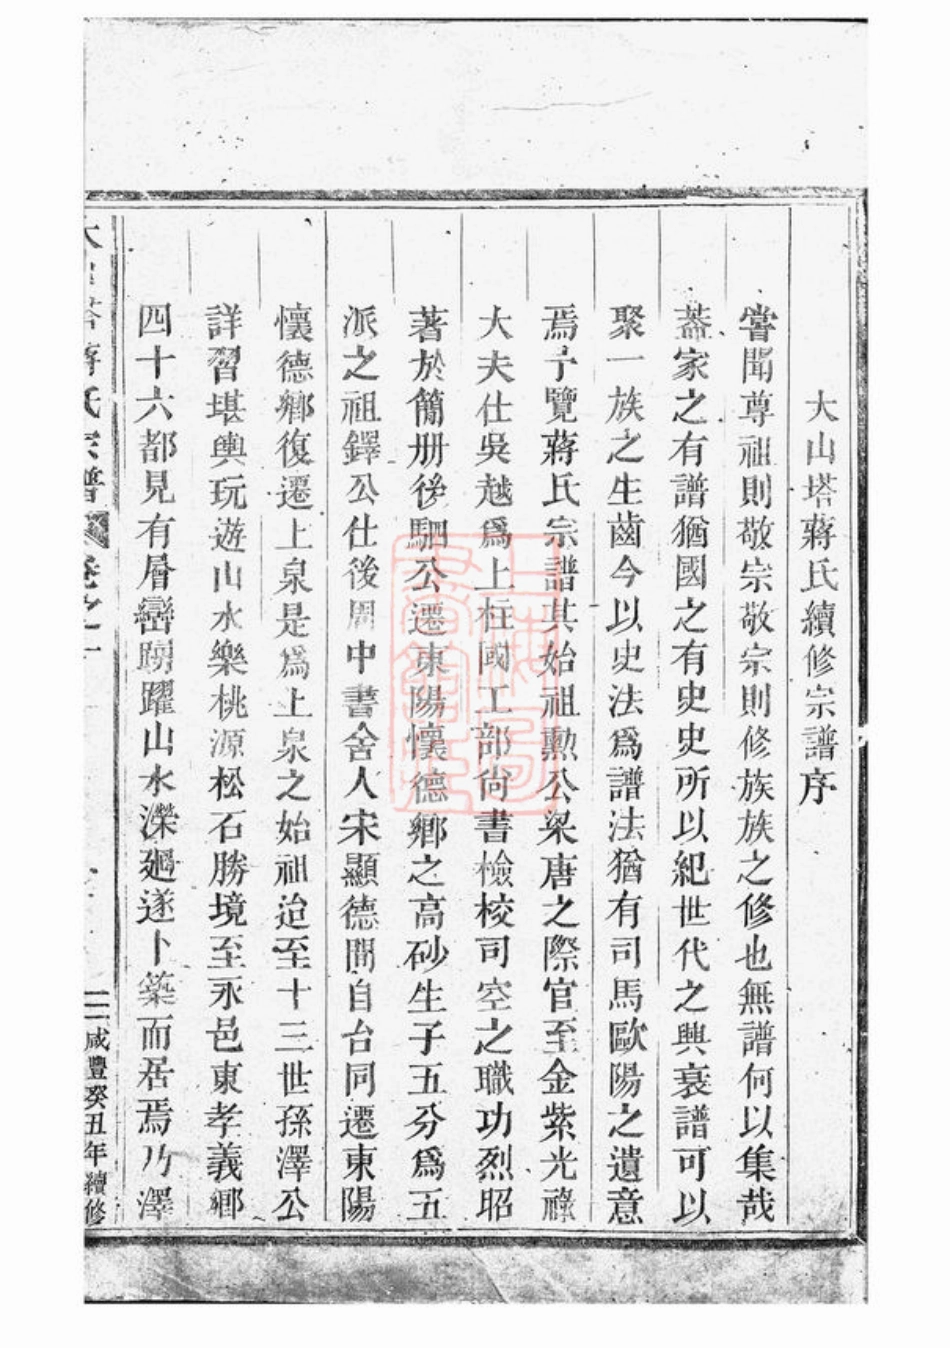 大山塔蔣氏續修宗譜序
嘗聞尊祖則敬宗敬宗則修族族之修也無譜何以集哉
葢家之有譜猶國之有史史所以紀世代之興衰譜可以
聚一族之生齒今以史法爲譜法猶有司馬歐陽之遺意
焉予覽蔣氏宗譜其始祖勲公梁唐之際官至金紫光祿
大夫仕吳越爲上柱國工部尙書檢校司空之職功烈昭
著於簡册後駟公遷東陽懷德鄉之高砂生子五分爲五
派之祖鐸公仕後周中書舍人宋顯德間自台同遷東陽
懷德鄉復遷上泉是爲上泉之始祖迨至十三世孫澤公
詳習堪輿玩遊山水樂桃源松石勝境至永邑東孝義鄉
四十六都見有層巒踴躍山水濚廻遂卜築而居焉乃澤
大山塔蔣氏宗譜 卷之一
咸豐癸丑年續修